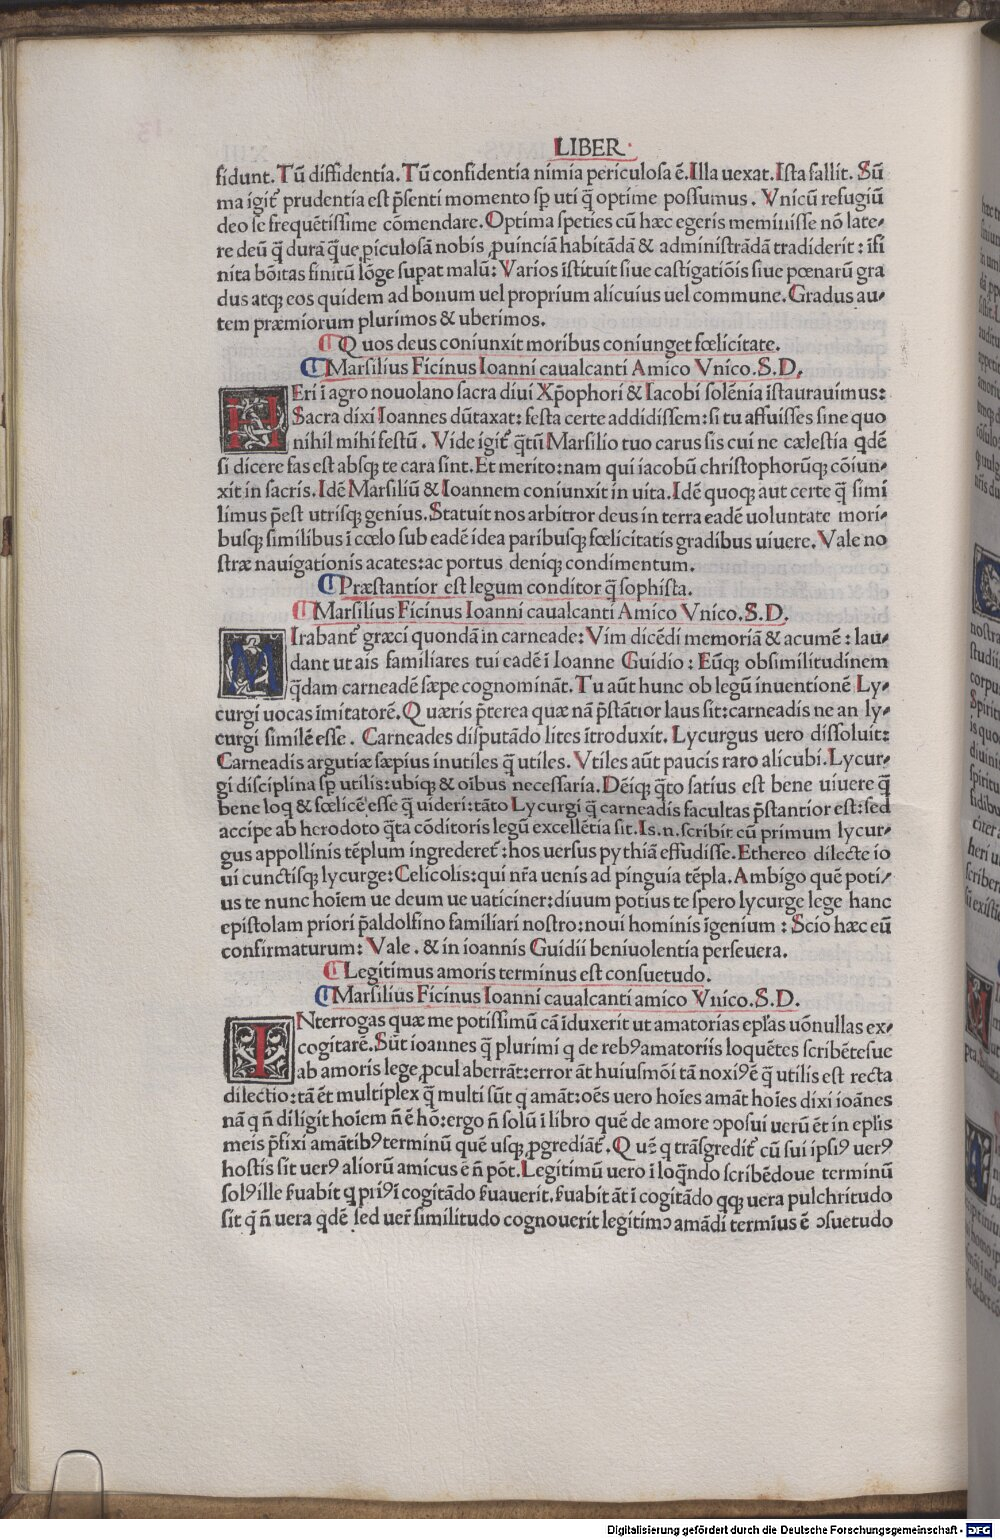 LIBER
fidunt. Tū diffidentia. Tū confidentia nimia periculosa ē. Illa uexat. Ista fallit. Sū
ma igit᷑ prudentia est p̄senti momento sp̱ uti q̄ optime possumus. Vnicū refugiū
deo se frequētissime cōmendare. Optima speties cū hæc egeris meminisse nō late⸗
re deū q̄ durā q̄ue ꝑiculosā nobis ꝓuinciā habitādā & administrādā tradiderit: īfi
nita bōitas finitū lōge supat malū: Varios īstituit siue castigatiōis siue pœnarū gra
dus atqꝫ eos quidem ad bonum uel proprium alicuius uel commune. Gradus au⸗
tem præmiorum plurimos & uberimos.
Quos deus coniunxit moribus coniunget fœlicitate.
Marsilius Ficinus Ioanni caualcanti Amico Vnico. S. D.
HEri ī agro nouolano sacra diui Xp̄ophori & Iacobi solēnia īstaurauimus:
Sacra dixi Ioannes dūtaxat: festa certe addidissem: si tu affuisses sine quo
nihil mihi festū. Vide igit᷑ q̄tū Marsilio tuo carus sis cui ne cælestia qdē
si dicere fas est absqꝫ te cara sint. Et merito: nam qui iacobū christophorūqꝫ cōiun⸗
xit in sacris. Idē Marsiliū & Ioannem coniunxit in uita. Idē quoqꝫ aut certe q̄ simi
limus p̄est utrisqꝫ genius. Statuit nos arbitror deus in terra eadē uoluntate mori⸗
busqꝫ similibus ī cœlo sub eadē idea paribusqꝫ fœlicitatis gradibus uiuere. Vale no
stræ nauigationis acates: ac portus deniqꝫ condimentum.
Præstantior est legum conditor q̄ sophista.
Marsilius Ficinus Ioanni caualcanti Amico Vnico. S. D.
MIrabant᷑ græci quondā in carneade: Vim dicēdi memoriā & acumē: lau⸗
dant ut ais familiares tui eadē ī Ioanne Guidio: Eūqꝫ obsimilitudinem
q̄dam carneadē sæpe cognomināt. Tu aūt hunc ob legū inuentionē Ly⸗
curgi uocas imitatorē. Quæris p̄terea quæ nā p̄stātior laus sit: carneadis ne an ly⸗
curgi similē esse. Carneades disputādo lites ītroduxit. Lycurgus uero dissoluit:
Carneadis argutiæ sæpius inutiles q̄ utiles. Vtiles aūt paucis raro alicubi. Lycur⸗
gi disciplina sp̱ utilis: ubiqꝫ & oībus necessaria. Dēiqꝫ q̄to satius est bene uiuere q̄
bene loq & fœlicē esse q̄ uideri: tāto Lycurgi q̄ carneadis facultas p̄stantior est: sed
accipe ab herodoto q̄ta cōditoris legū excellētia sit. Is. n. scribit cū primum lycur⸗
gus appollinis tēplum ingrederet᷑: hos uersus pythiā effudisse. Ethereo dilecte io
ui cunctisqꝫ lycurge: Celicolis: qui nr̄a uenis ad pinguia tēpla. Ambigo quē poti⸗
us te nunc hoīem ue deum ue uaticiner: diuum potius te spero lycurge lege hanc
epistolam priori p̄aldolfino familiari nostro: noui hominis īgenium: Scio hæc eū
confirmaturum: Vale. & in ioannis Guidii beniuolentia perseuera.
Legitimus amoris terminus est consuetudo.
Marsilius Ficinus Ioanni caualcanti amico Vnico. S. D.
INterrogas quæ me potissimū cā īduxerit ut amatorias ep̄las uōnullas ex⸗
cogitarē. Sūt ioannes q̄ plurimi q de rebꝰ amatoriis loquētes scribētesue
ab amoris lege ꝓcul aberrāt: error āt huiusmōi tā noxiꝰ ē q̄ utilis est recta
dilectio: tā ēt multiplex q̄ multi sūt q amāt: oēs uero hoīes amāt hoīes dixi ioānes
nā q n̄ diligit hoīem n̄ ē hō: ergo n̄ solū ī libro quē de amore ↄposui uerū ēt in ep̄lis
meis p̄fixi amātibꝰ terminū quē usqꝫ ꝓgrediāt᷑. Quē q trāsgredit᷑ cū sui ipsiꝰ uerꝰ
hostis sit uerꝰ aliorū amicus ē n̄ pōt. Legitimū uero ī loq̄ndo scribēdoue terminū
solꝰ ille ẜuabit q priꝰ ī cogitādo ẜuauerit. ẜuabit āt ī cogitādo qqꝫ uera pulchritudo
sit q̄ n̄ uera qdē sed uer̄similitudo cognouerit legitimↄ amādi termīus ē ↄsuetudo
Digitalisierung gefördert durch die Deutsche Forschungsgemeinschaft - DFG